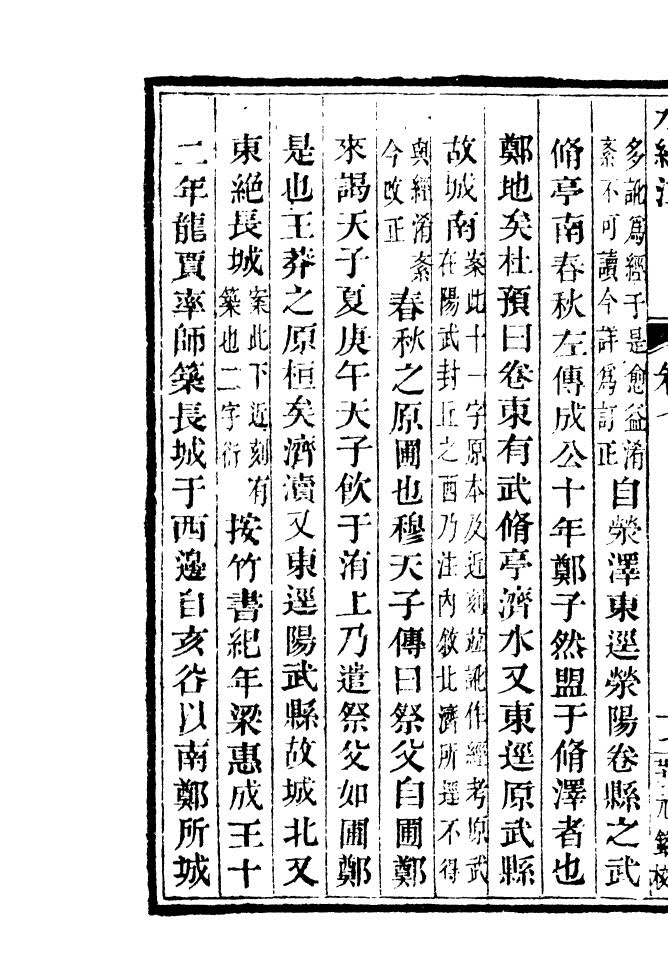 水經注 卷七
多訛爲經于是愈益淆
紊不可讀今詳爲訂正自滎澤東逕滎陽卷縣之武
脩亭南春秋左傳成公十年鄭子然盟于脩澤者也
鄭地矣杜預曰卷東有武脩亭濟水又東逕原武縣
故城南案此十一字原本及近刻竝訛作經考原武
在陽武封丘之西乃注內敘北濟所逕不得
與經淆紊
今改正春秋之原圃也穆天子傳曰祭父自圃鄭
來謁天子夏庚午天子飲于洧上乃遣祭父如圃鄭
是也王莽之原桓矣濟瀆又東逕陽武縣故城北又
東絕長城案此下近刻有
築也二字衍按竹書紀年梁惠成王十
二年龍賈率師築長城于西邊自亥谷以南鄭所城